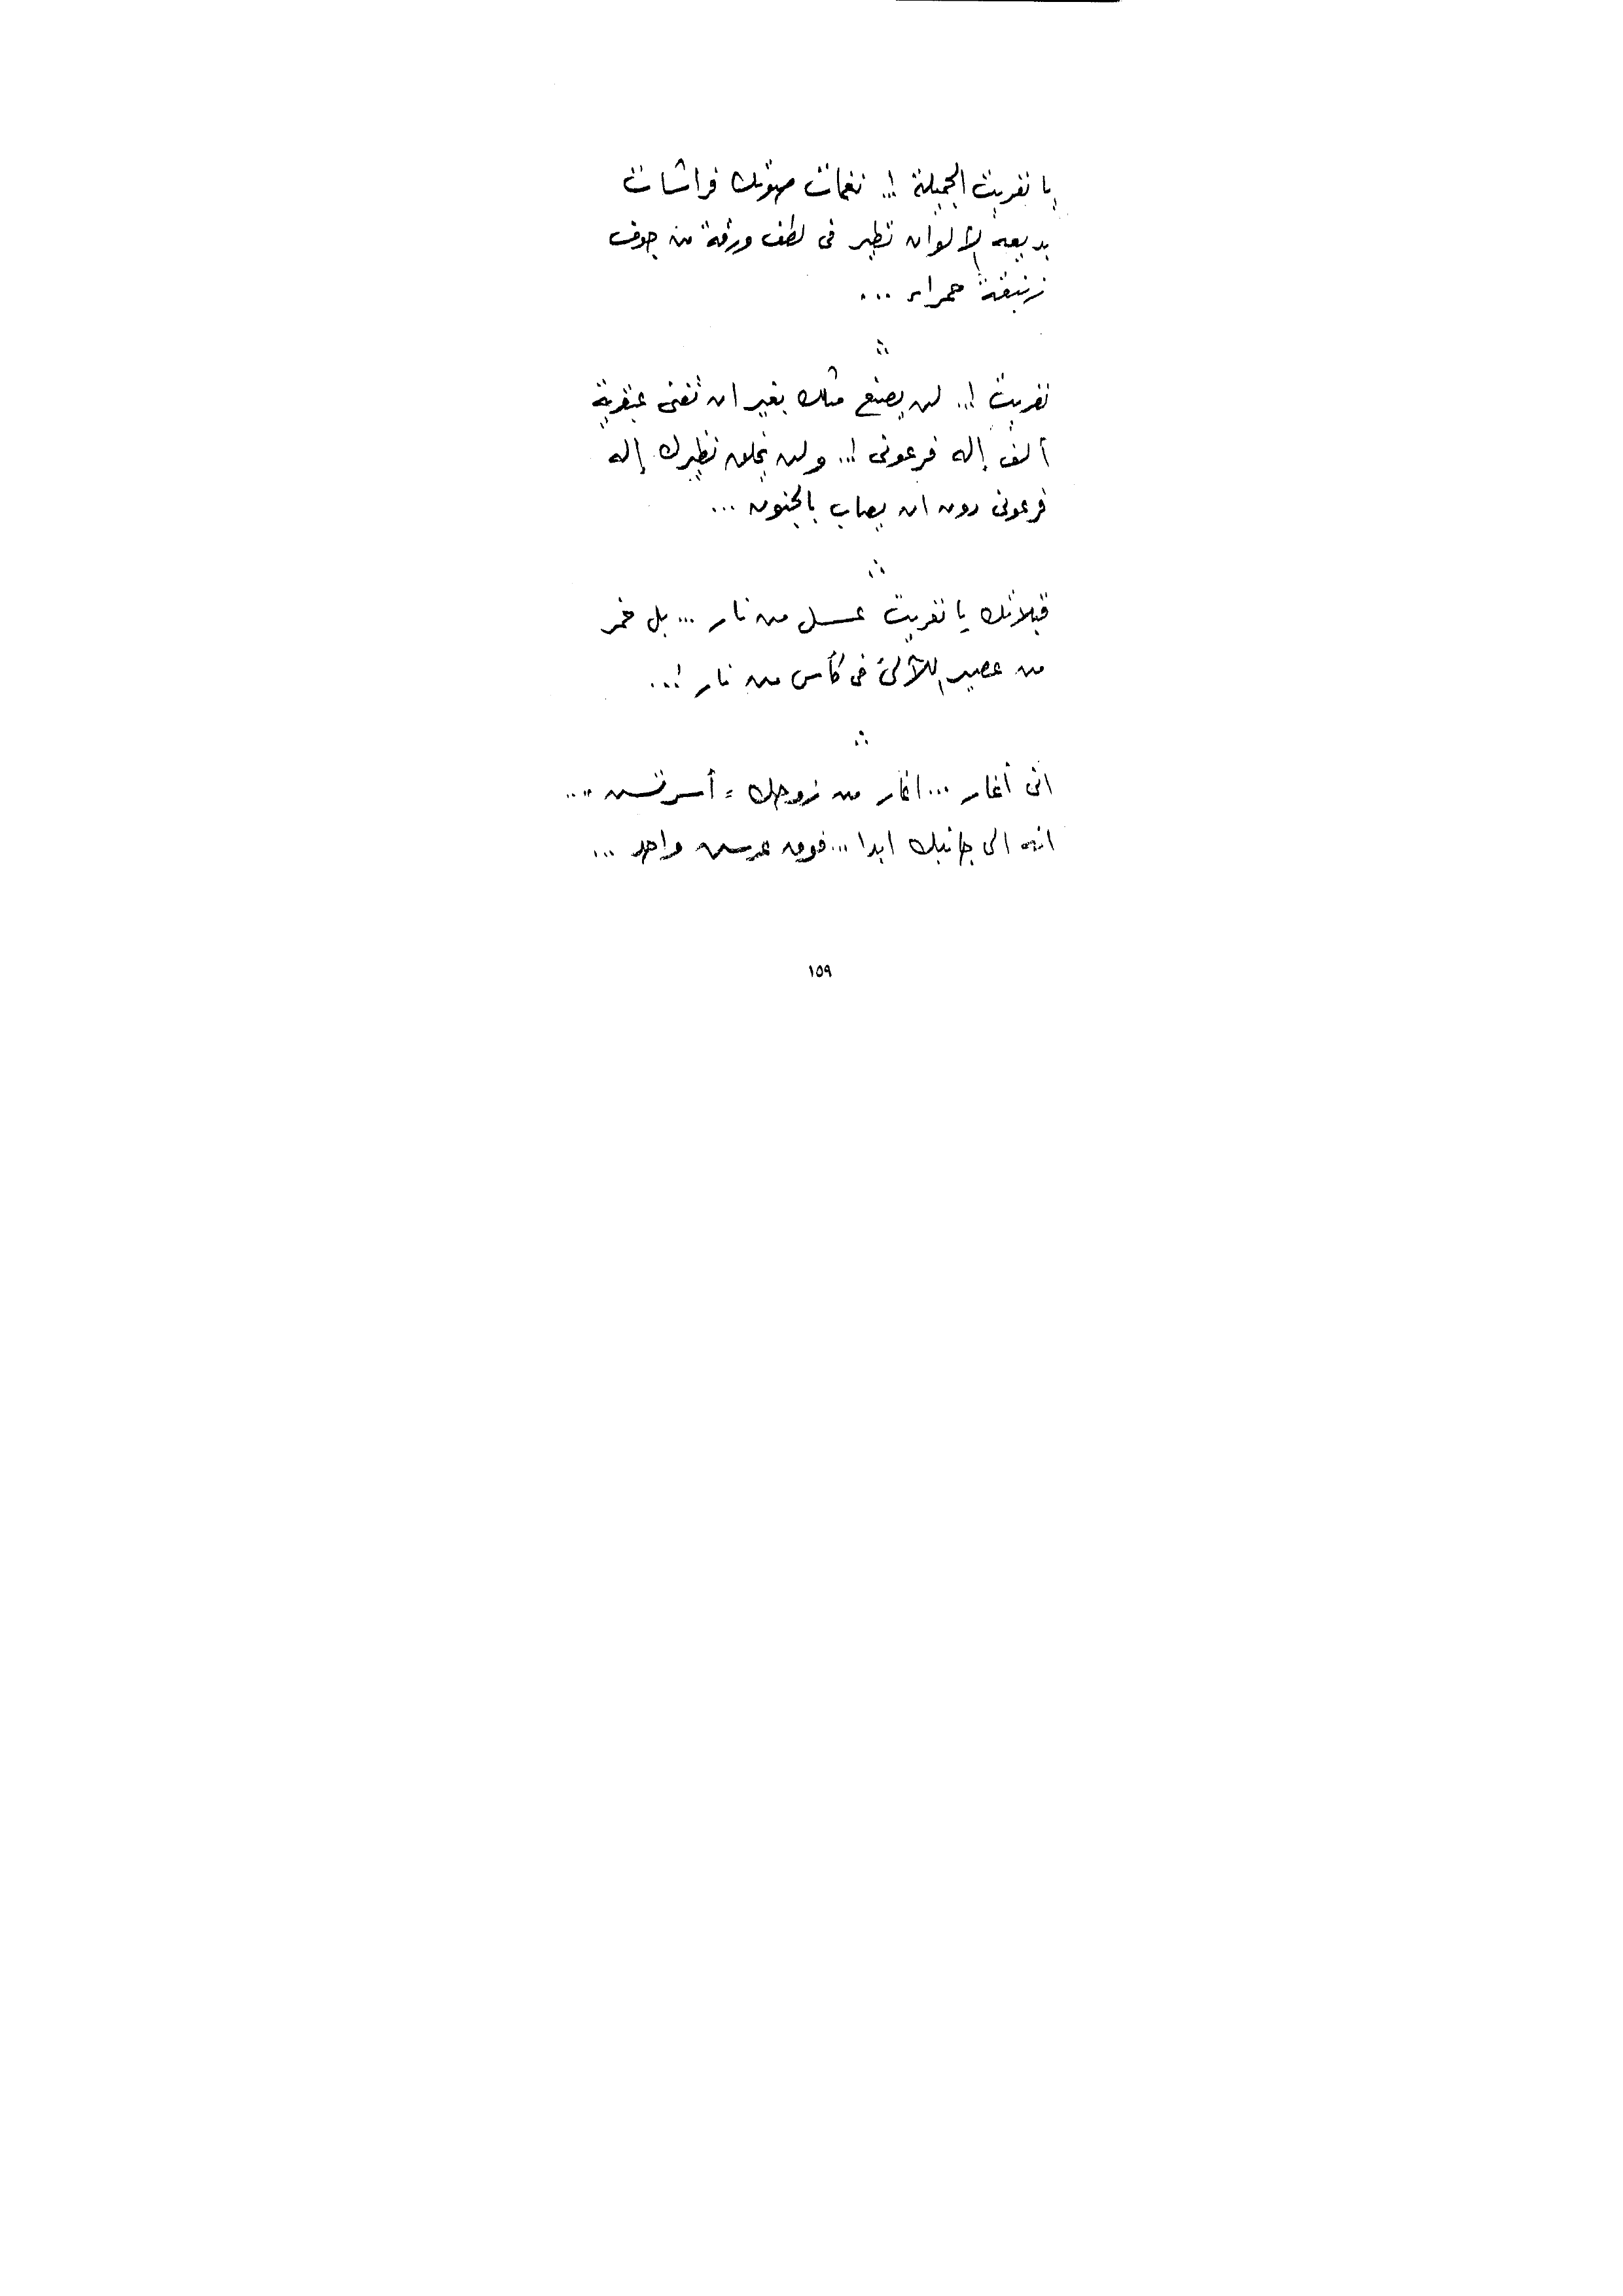 يا نفريت الجميلة !.. نغمات صوتك فراشات
بديعة الألوان تطير فى لطف ورقة من جوف
زنبقة حمراء ...
نفريت !.. لن يصنع مثلك بغير ان تفنى عبقرية
ألف إله فرعونى !.. ولن يخلق نظيرك إله
فرعونى دون ان يصاب بالجنون ...
قبلاتك يا نفريت عسل من نار ... بل خمر
من عصير اللآلئ فى كأس من نار !..
انى أغار ... اغار من زوجك " أسرتسن " ..
انه الى جانبك ابدا ... فوق عرش واحد ...
١٥٩